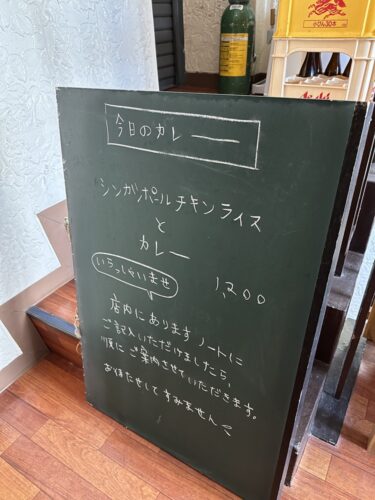 小びん30本
Asahi
今日のカレー
シンガポールチキンライス
と
カレー
1,200
いらっしゃいませ
店内にあります ノートに
ご記入いただけましたら、
順に ご案内させていただきます。
お待たせしてすみません